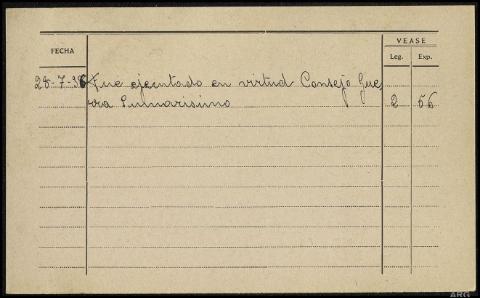 VEASE
FECHA
Leg. Exp.
28-7-36 Fue ejecutado en virtud Consejo Gue-
rra Sumarisimo 2 56
ARG